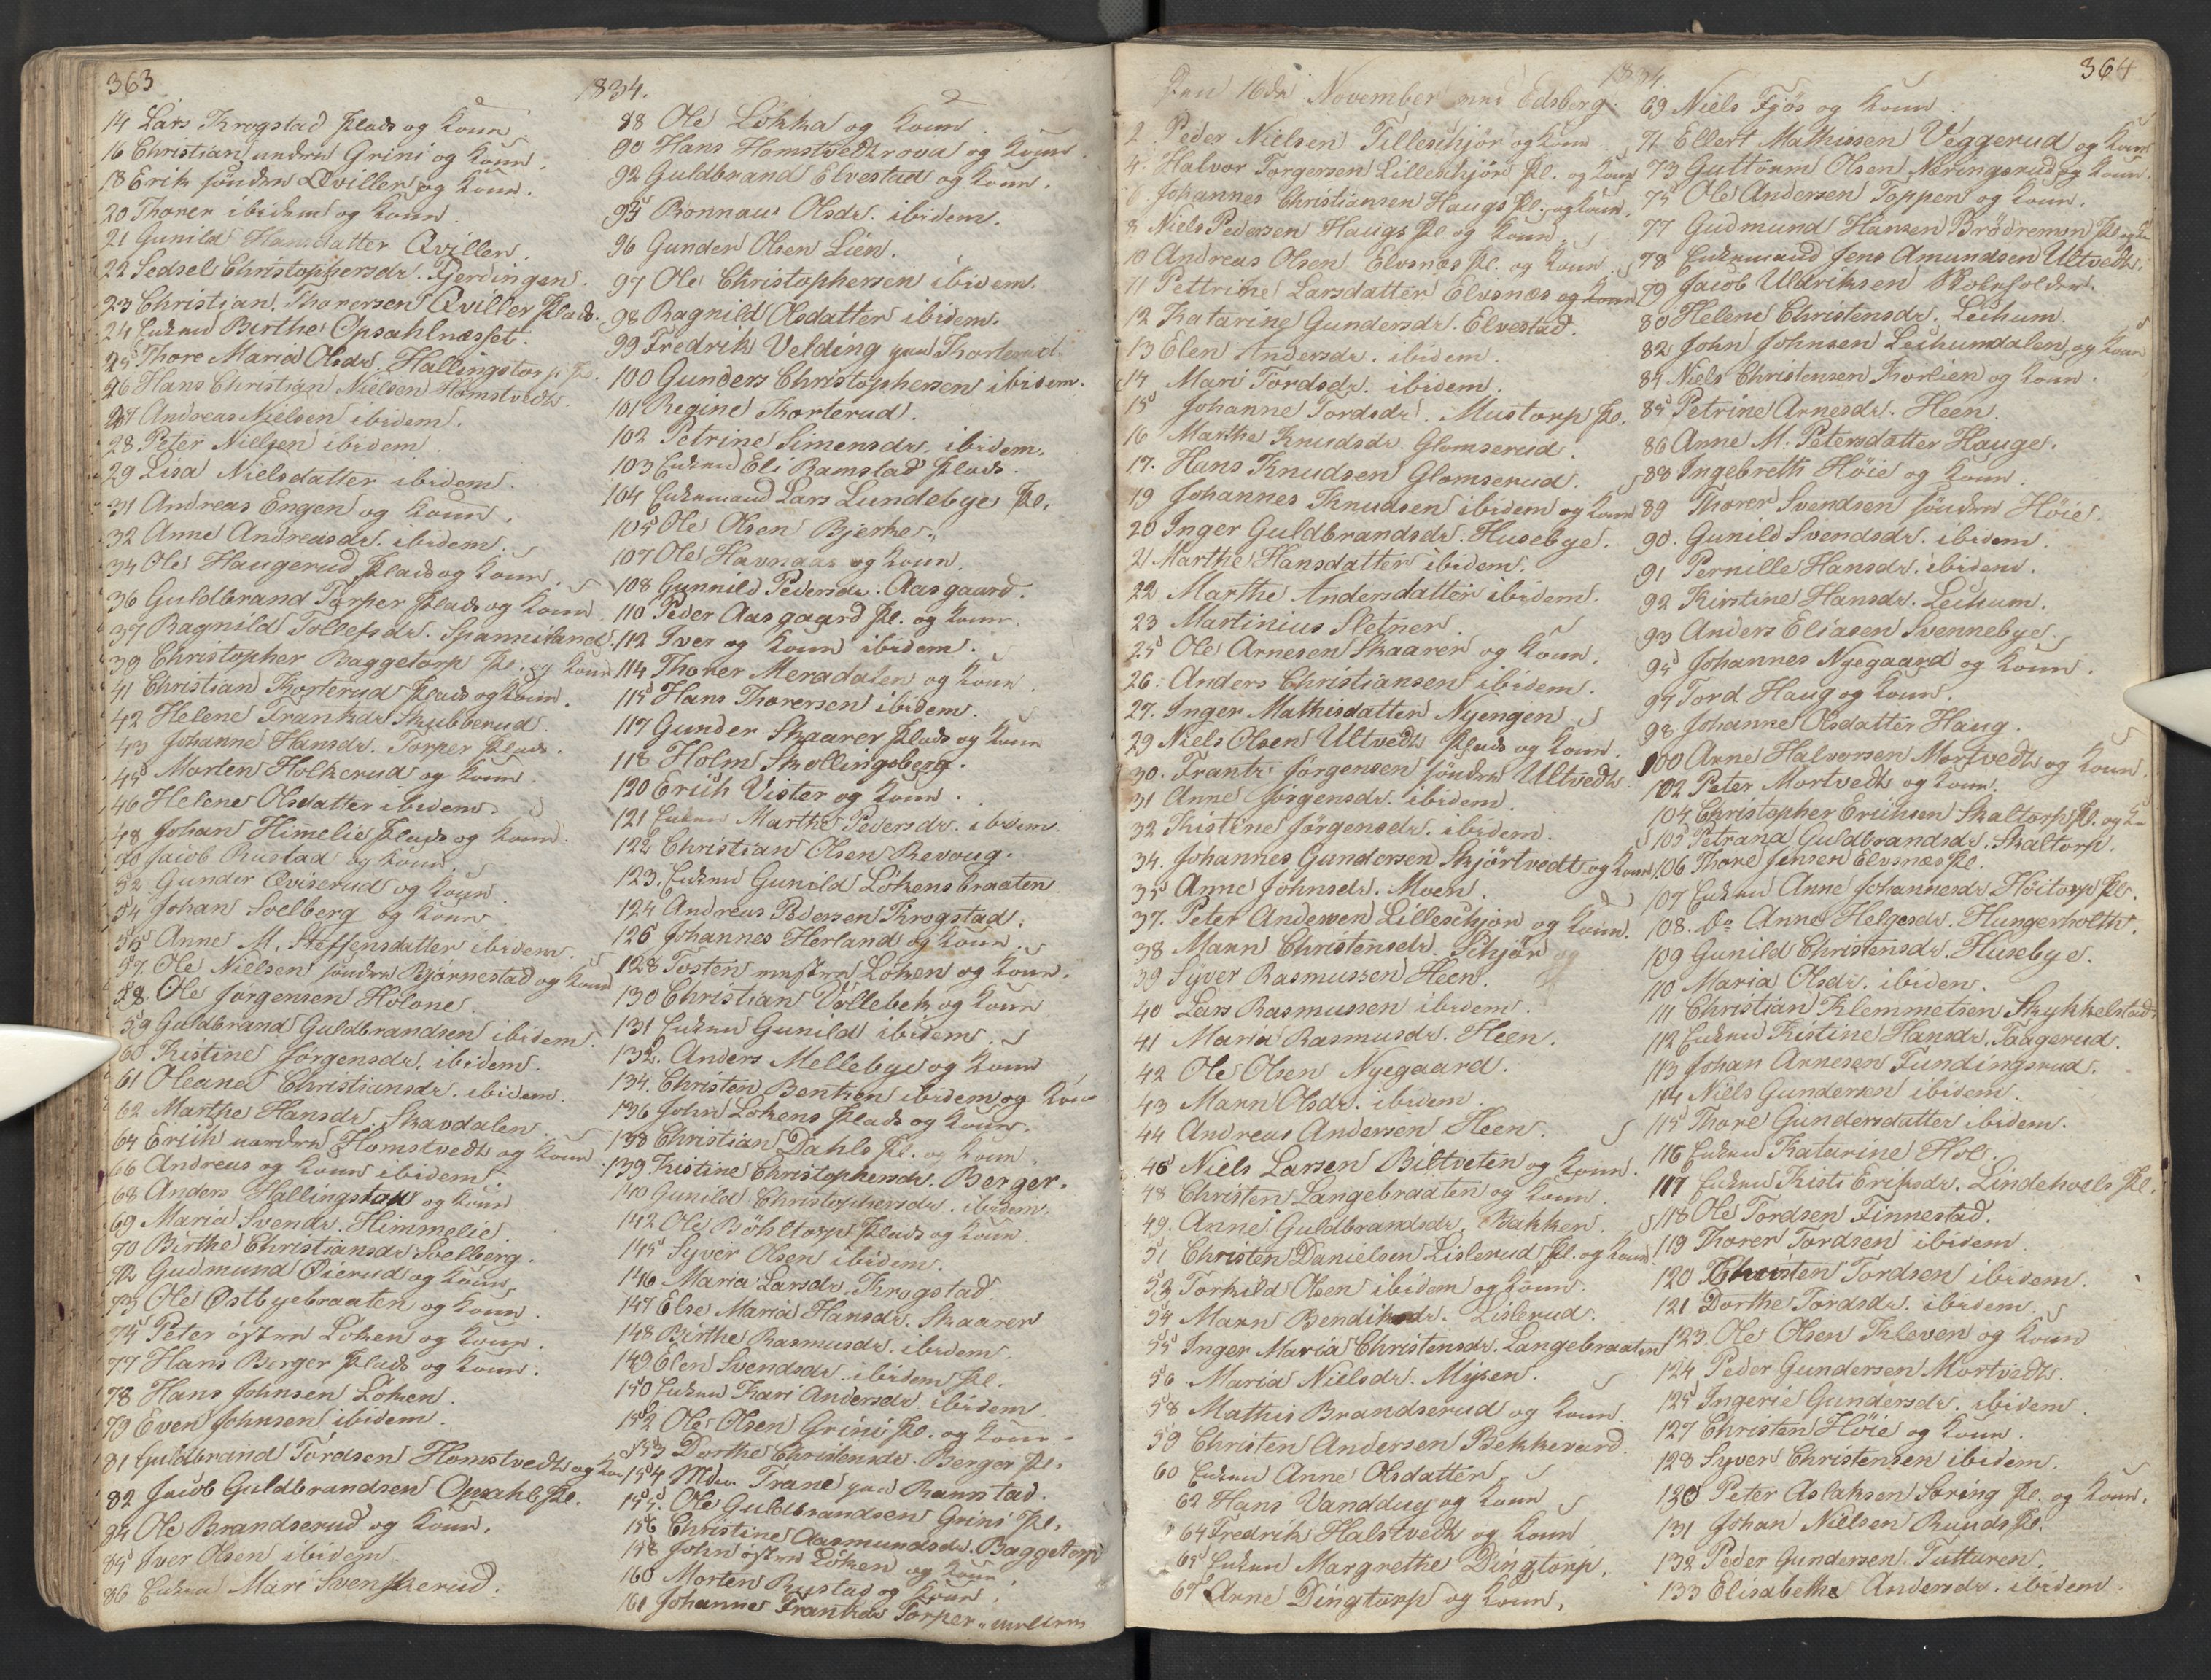 363
1834.
14 Lars Krogstad Plads og Kone.
16 Christian undre Grini og Kone.
18 Erik søndre Qviller og Kone.
20 Thorer ibidem og Kone.
21 Gunild Hansdatter Qviller.
22 Sedsel Christophersdr. Gjerdingen.
23 Christian Thorersen Qviller Plads.
24 Enken Birthe Opsahlnæsset.
25 Thore Maria Olsdr. Hallingstorp Pl.
26 Hans Christian Nielsen Homstvedt.
27 Andreas Nielsen ibidem.
28 Peter Nielsen ibidem.
29 Lisa Nielsdatter ibidem.
31 Andreas Engen og Kone.
32 Anne Andreasdr. ibidem.
34 Ole Haugerud Plads og Kone.
36 Guldbrand Torper Plads og Kone
37 Ragnild Tollefsdr. Spanniland.
39 Christopher Baggetorp Pl. og Kone
41 Christian Korterud Plads og Kone.
42 Helene Frantsdr. Skubberud.
43 Johanne Hansdr. Torper Plads.
45 Morten Holkerud og Kone.
46 Helene Olsdatter ibidem.
48 Johan Himmelie Plads og Kone.
50 Jacob Rustad og Kone.
52 Gunder Qviserud og Kone
54 Johan Soelberg og Kone
55 Anne M. Steffensdatter ibidem.
57. Ole Nielsen søndre Bjørnestad og Kone
58. Ole Jørgensen Holone.
59 Guldbrand Guldbrandsen ibidem.
60 Kistine Jørgensdr. ibidem.
61 Oleane Christiansdr. ibidem.
62 Marthe Hansdr. Skavdalen.
64 Erich nordre Homstvedt og Kone
66 Andreas og Kone ibidem.
68 Anders Hallingstad og Kone
69 Maria Svendr. Himmelie.
70 Birthe Christiansdr. Soelberg.
72 Gudmund Øierud og Kone
73 Ole Østbyebraaten og Kone.
75 Peter østre Løken og Kone.
77 Hans Berger Plads og Kone.
78 Hans Johnsen Løken.
79 Even Johnsen ibidem.
81 Guldbrand Tordsen Homstvedt og Kone
82 Jacob Guldbrandsen Opsahls Pl.
84 Ole Brandserud og Kone.
85 Iver Olsen ibidem.
86 Enken Mari Svenskerud.
88 Ole Løkka og Kone.
90 Hans Homstvedtrova og Kone.
92 Guldbrand Elvestad og Kone.
95 Ronnau Olsdr. ibidem.
96 Gunder Olsen Lien.
97 Ole Christophersen ibidem.
98 Ragnild Olsdatter ibidem.
99 Fredrik Velding paa Korterud
100 Gunders Christophersen ibidem.
101 Regine Korterud.
102 Petrine Simensdr. ibidem.
103 Enken Eli Ramstad Plads.
104 Enkemand Lars Lundebye Pl.
105 Ole Olsen Bjerke.
107 Ole Havnaas og Kone.
108 Gunnild Pedersdr. Aasgaard.
110 Peder Aasgaard Pl. og Kone.
112 Iver og Kone ibidem.
114 Thorer Meradalen og Kone.
115 Hans Thorersen ibidem.
117 Gunder Skaarer Plads og Kone
118 Holm Skellingsberg.
120 Erich Vister og Kone.
121 Enken Marthe Pedersdr. ibidem.
122 Christian Olsen Revoug.
123. Enken Gunild Løkensbraaten
124 Andreas Pedersen Krogstad.
126 Johannes Herland og Kone.
128 Tosten vestre Løken og Kone.
130 Christian Vollebek og Kone
131 Enken Gunild ibidem.
132. Anders Mellebye og Kone
134. Christen Benken ibidem og Kone
136 John Løkens Plads og Kone.
138 Christian Dahls Pl. og Kone.
139 Kistine Christophersdr. Berger.
140 Gunild Christophersdr. ibidem.
142 Ole Bøhltorp Plads og Kone.
145 Syver Olsen ibidem.
146 Maria Larsdr. Krogstad.
147 Else Maria Hansdr. Skaarer
148 Birthe Rasmusdr. ibidem.
149 Elen Svendsdr. ibidem Pl.
150 Enken Kari Andersdr. ibidem.
152 Ole Olsen Grini Pl. og Kone
153 Dorthe Christensdr. Berger Pl.
154 Mdm. Trane paa Ramstad.
155. Ole Guldbrandsen Grini Pl.
156 Christine Aasmundsdr. Baggetorp
158 John østre Løken og Kone.
160 Morten Rustad og Kone.
161 Johanne Frantsdr. Torper
364
1834.
Den 16de November Edsberg.
2. Peder Nielsen Lilleschjør og Kone
4. Halvor Torgersen Lilleschjør Pl. og Kone
6. Johannes Christiansen Haugs Pl. og Kone.
8 Niels Pedersen Haugs Pl. og Kone.
10 Andreas Olsen Elvsnæs Pl. og Kone.
11 Pettrine Larsdatter Elvsnæs og Kone
12 Katarine Gundersdr. Elvestad.
13 Elen Andersdr. ibidem.
14 Mari Tordsdr. ibidem.
15 Johanne Tordsdr. Mustorp Pl.
16 Marthe Knudsdr. Glomserud.
17. Hans Knudsen Glomserud.
19 Johannes Knudsen ibidem og Kone
20 Inger Guldbrandsdr. Husebye.
21 Marthe Hansdatter ibidem.
22 Marthe Andersdatter ibidem.
23 Martinius Sletner.
25 Ole Arnesen Skaarer og Kone.
26. Anders Christiansen ibidem.
27. Inger Mathisdatter Nyengen.
29 Niels Olsen Ultvedt Plads og Kone.
30. Frantz Jørgensen søndre Ultvedt.
31 Anne Jørgensdr. ibidem.
32 Kistine Jørgensdr. ibidem.
34. Johannes Gundersen Skjørtvedt og Kone
35 Anne Johnsdr. Moen.
37. Peter Andersen Lilleschjør og Kone.
38 Maren Christensdr. Schjør
39 Syver Rasmussen Heen.
40 Lars Rasmussen ibidem.
41 Maria Rasmusdr. Heen.
42 Ole Olsen Nyegaard.
43 Maren Olsdr. ibidem.
44 Andreas Andersen Heen.
46 Niels Larsen Biltveten og Kone.
48 Christen Langebraaten og Kone.
49. Anne Guldbrandsdr. Bakken.
51 Christen Danielsen Lislerud Pl. og Kone
53 Torkild Olsen ibidem og Kone.
54 Maren Bendiksdr. Lislerud.
55 Inger Maria Christensdr. Langebraaten
56 Maria Nielsdr. Mysen.
58 Mathis Brandserud og Kone
59 Christen Andersen Bekkevard.
60 Enken Anne Olsdatter.
62 Hans Vanddug og Kone
64 Fredrik Halstvedt og Kone
65 Enken Margrethe Dingtorp.
67 Arne Dingtorp og Kone.
69 Niels Fjøs og Kone.
71 Ellert Mathissen Veggerud og Kone
73 Guttorm Olsen Næringsrud og Kone.
75 Ole Andersen Toppen og Kone.
77 Gudmund Hansen Brødremon Pl. og K.
78 Enkemand Jens Amundsen Ultvedt.
79 Jacob Uldriksen Skoleholder.
80 Helene Christensdr. Leihum.
82 John Johnsen Leihumdalen og Kone
84 Niels Christensen Thorlien og Kone.
85 Petrine Arnesdr. Heen.
86 Anne M. Petersdatter Hauge.
88 Ingebreth Høie og Kone.
89 Thorer Svendsen søndre Høie.
90. Gunild Svendsdr. ibidem.
91 Pernille Hansdr. ibidem.
92 Kirstine Hansdr. Leihum.
93 Anders Eliasen Svennebye.
95 Johannes Nyegaard og Kone.
97 Tord Haug og Kone.
98 Johanne Olsdatter Haug.
100 Arne Halvorsen Mortvedt og Kone.
102 Peter Mortvedt og Kone.
104 Christopher Erichsen Skaltorp Pl. og K.
105 Petrana Guldbrandsdr. Skaltorp.
106 Thore Jensen Elvsnæs Pl.
107 Enken Anne Johannesdr. Høitorp Pl.
108. Do Anne Helgesdr. Hungerholtet.
109 Gunild Christensdr. Husebye.
110 Maria Olsdr. ibidem.
111 Christian Klemmetsen Skykkelstad.
112 Enken Kistine Hansdr. Taagerud.
113 Johan Arnesen Fundingsrud.
114 Niels Gundersen ibidem.
115 Thore Gundersdatter ibidem.
116 Enken Katarine Hol.
117 Enken Kisti Eriksdr. Lindehoels Pl.
118 Ole Tordsen Finnestad.
119 Thorer Tordsen ibidem
120 Christen Tordsen ibidem.
121 Dorthe Tordsdr. ibidem.
123. Ole Olsen Kleven og Kone
124 Peder Gundersen Mortvedt.
125 Ingerie Gundersdr. ibidem.
127 Christen Høie og Kone.
128 Syver Christensen ibidem.
130 Peter Aslaksen Søring Pl. og Kone.
131 Johan Nielsen Ruuds Pl.
132 Peder Gundersen Tutturen.
133 Elisabethe Andersdr. ibidem.